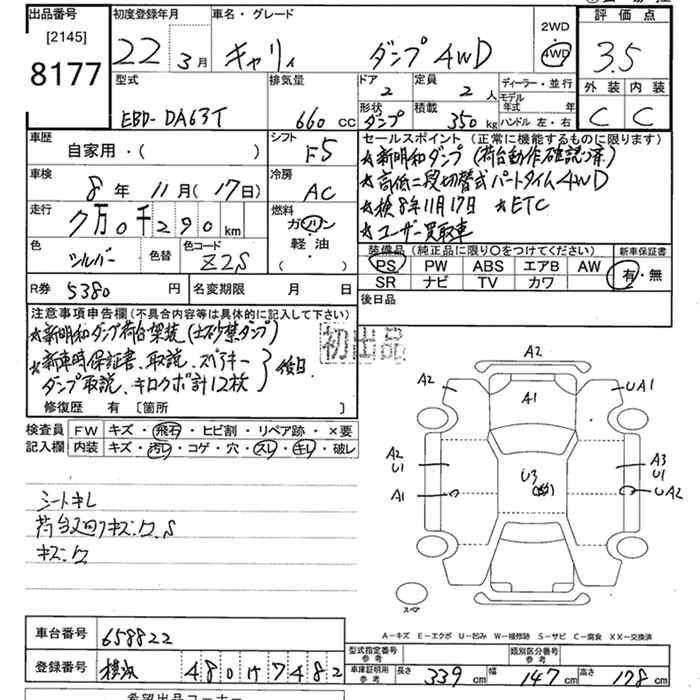 出品番号 初度登録年月 車名・グレード 2WD 評価点
[2145] 22年 3月 キャリィ ダンプ 4WD 4WD 3.5
8177 型式 排気量 ドア 定員 ディーラー・並行 外装 内装
2 2人 モデル年式 年
EBD-DA63T 660cc 形状 積載 ハンドル 左・右 C C
ダンプ 350kg
車歴 シフト セールスポイント(正常に機能するものに限ります)
自家用・( ) F5 ★新明和ダンプ(荷台動作確認済)
車検 冷房 ★高低二段切替式パートタイム4WD
8年 11月(17日) AC ★検8年11月17日 ★ETC
走行 燃料 ★ユーザー買取車
7万0千290km ガソリン 装備品(純正品に限り〇をつけてください) 新車保証書
色 色替 色コード 軽油 PS PW ABS エアB AW 有・無
シルバー Z2S ( ) SR ナビ TV カワ
R券 5380円 名変期限 月 日 後日品
注意事項申告欄(不具合内容等は具体的に記入して下さい)
★新明和ダンプ荷台架装(土砂禁ダンプ) 初出品
★新車時保証書、取説、スペアキー
ダンプ取説、キロクボ計12枚 }後日
修復歴 有 [箇所 ]
検査員 FW キズ・飛石・ヒビ割・リペア跡・×要
記入欄 内装 キズ・汚レ・コゲ・穴・スレ・キレ・破レ
A2
A2 A1 UA1
A2 A3
U1 U3 U1
A1 UA2
シートキレ
荷台廻りキズ、ク、S
キズ、ク
スペア
A-キズ E-エクボ U-凹み W-補修跡 S-サビ C-腐食 XX-交換済
車台番号 658822
型式指定番号 参考 類別区分番号 参考
登録番号 横浜 480け7482 車庫証明用参考 長さ 339cm 幅 147cm 高さ 178cm
希望出品コーナー